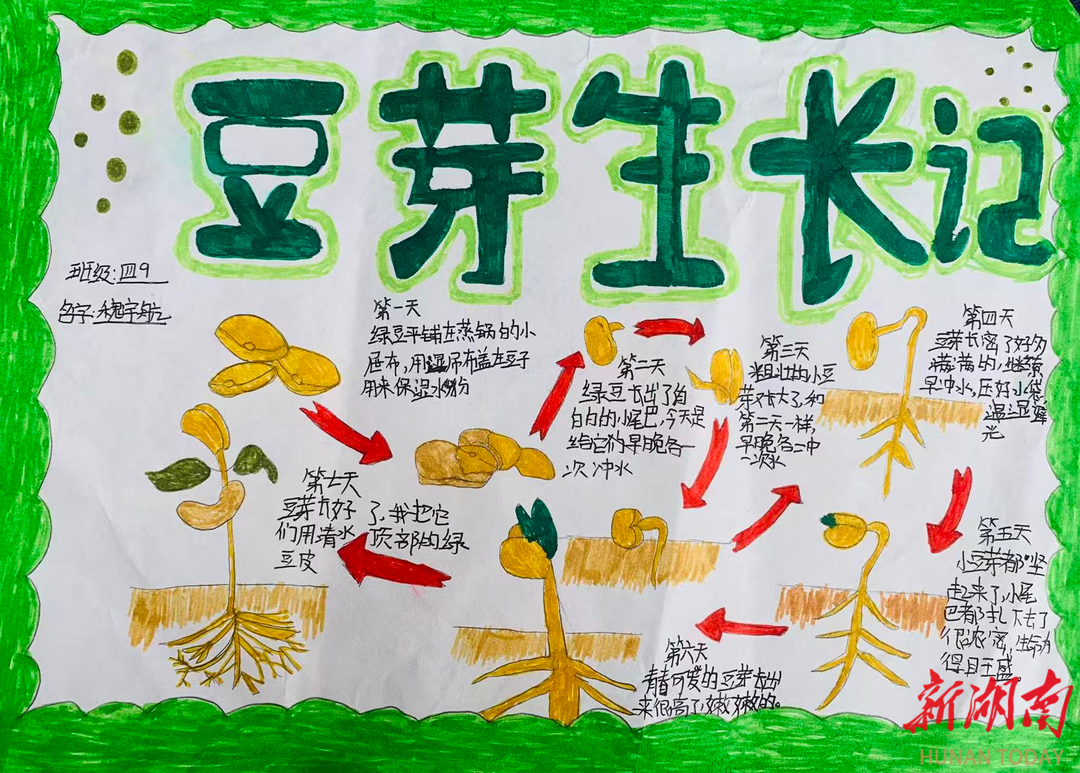 豆芽生长记
班级:四9
名字:魏宇航
第一天
绿豆平铺在蒸锅的小
屉布,用湿吊布盖在豆子
用来保湿水份
第二天
绿豆长出了自
白白的小尾巴,今天是
给它们早晚各一
次冲水
第三天
粗壮的小豆
芽长大了,和
第二天一样,
早晚各冲
一次水
第四天
豆芽长高了好多
满满的,继续
早冲水,压好小袋,
遮光
第五天
小豆芽都坚
起来了,小尾
巴都扎下去了
很浓密,生命力
得旺盛。
第六天
青青可爱的豆芽长出
来很高了,嫩嫩的。
第七天
豆芽长好了,我把它
们用清水 顶部的绿
豆皮
新湖南
HUNAN TODAY